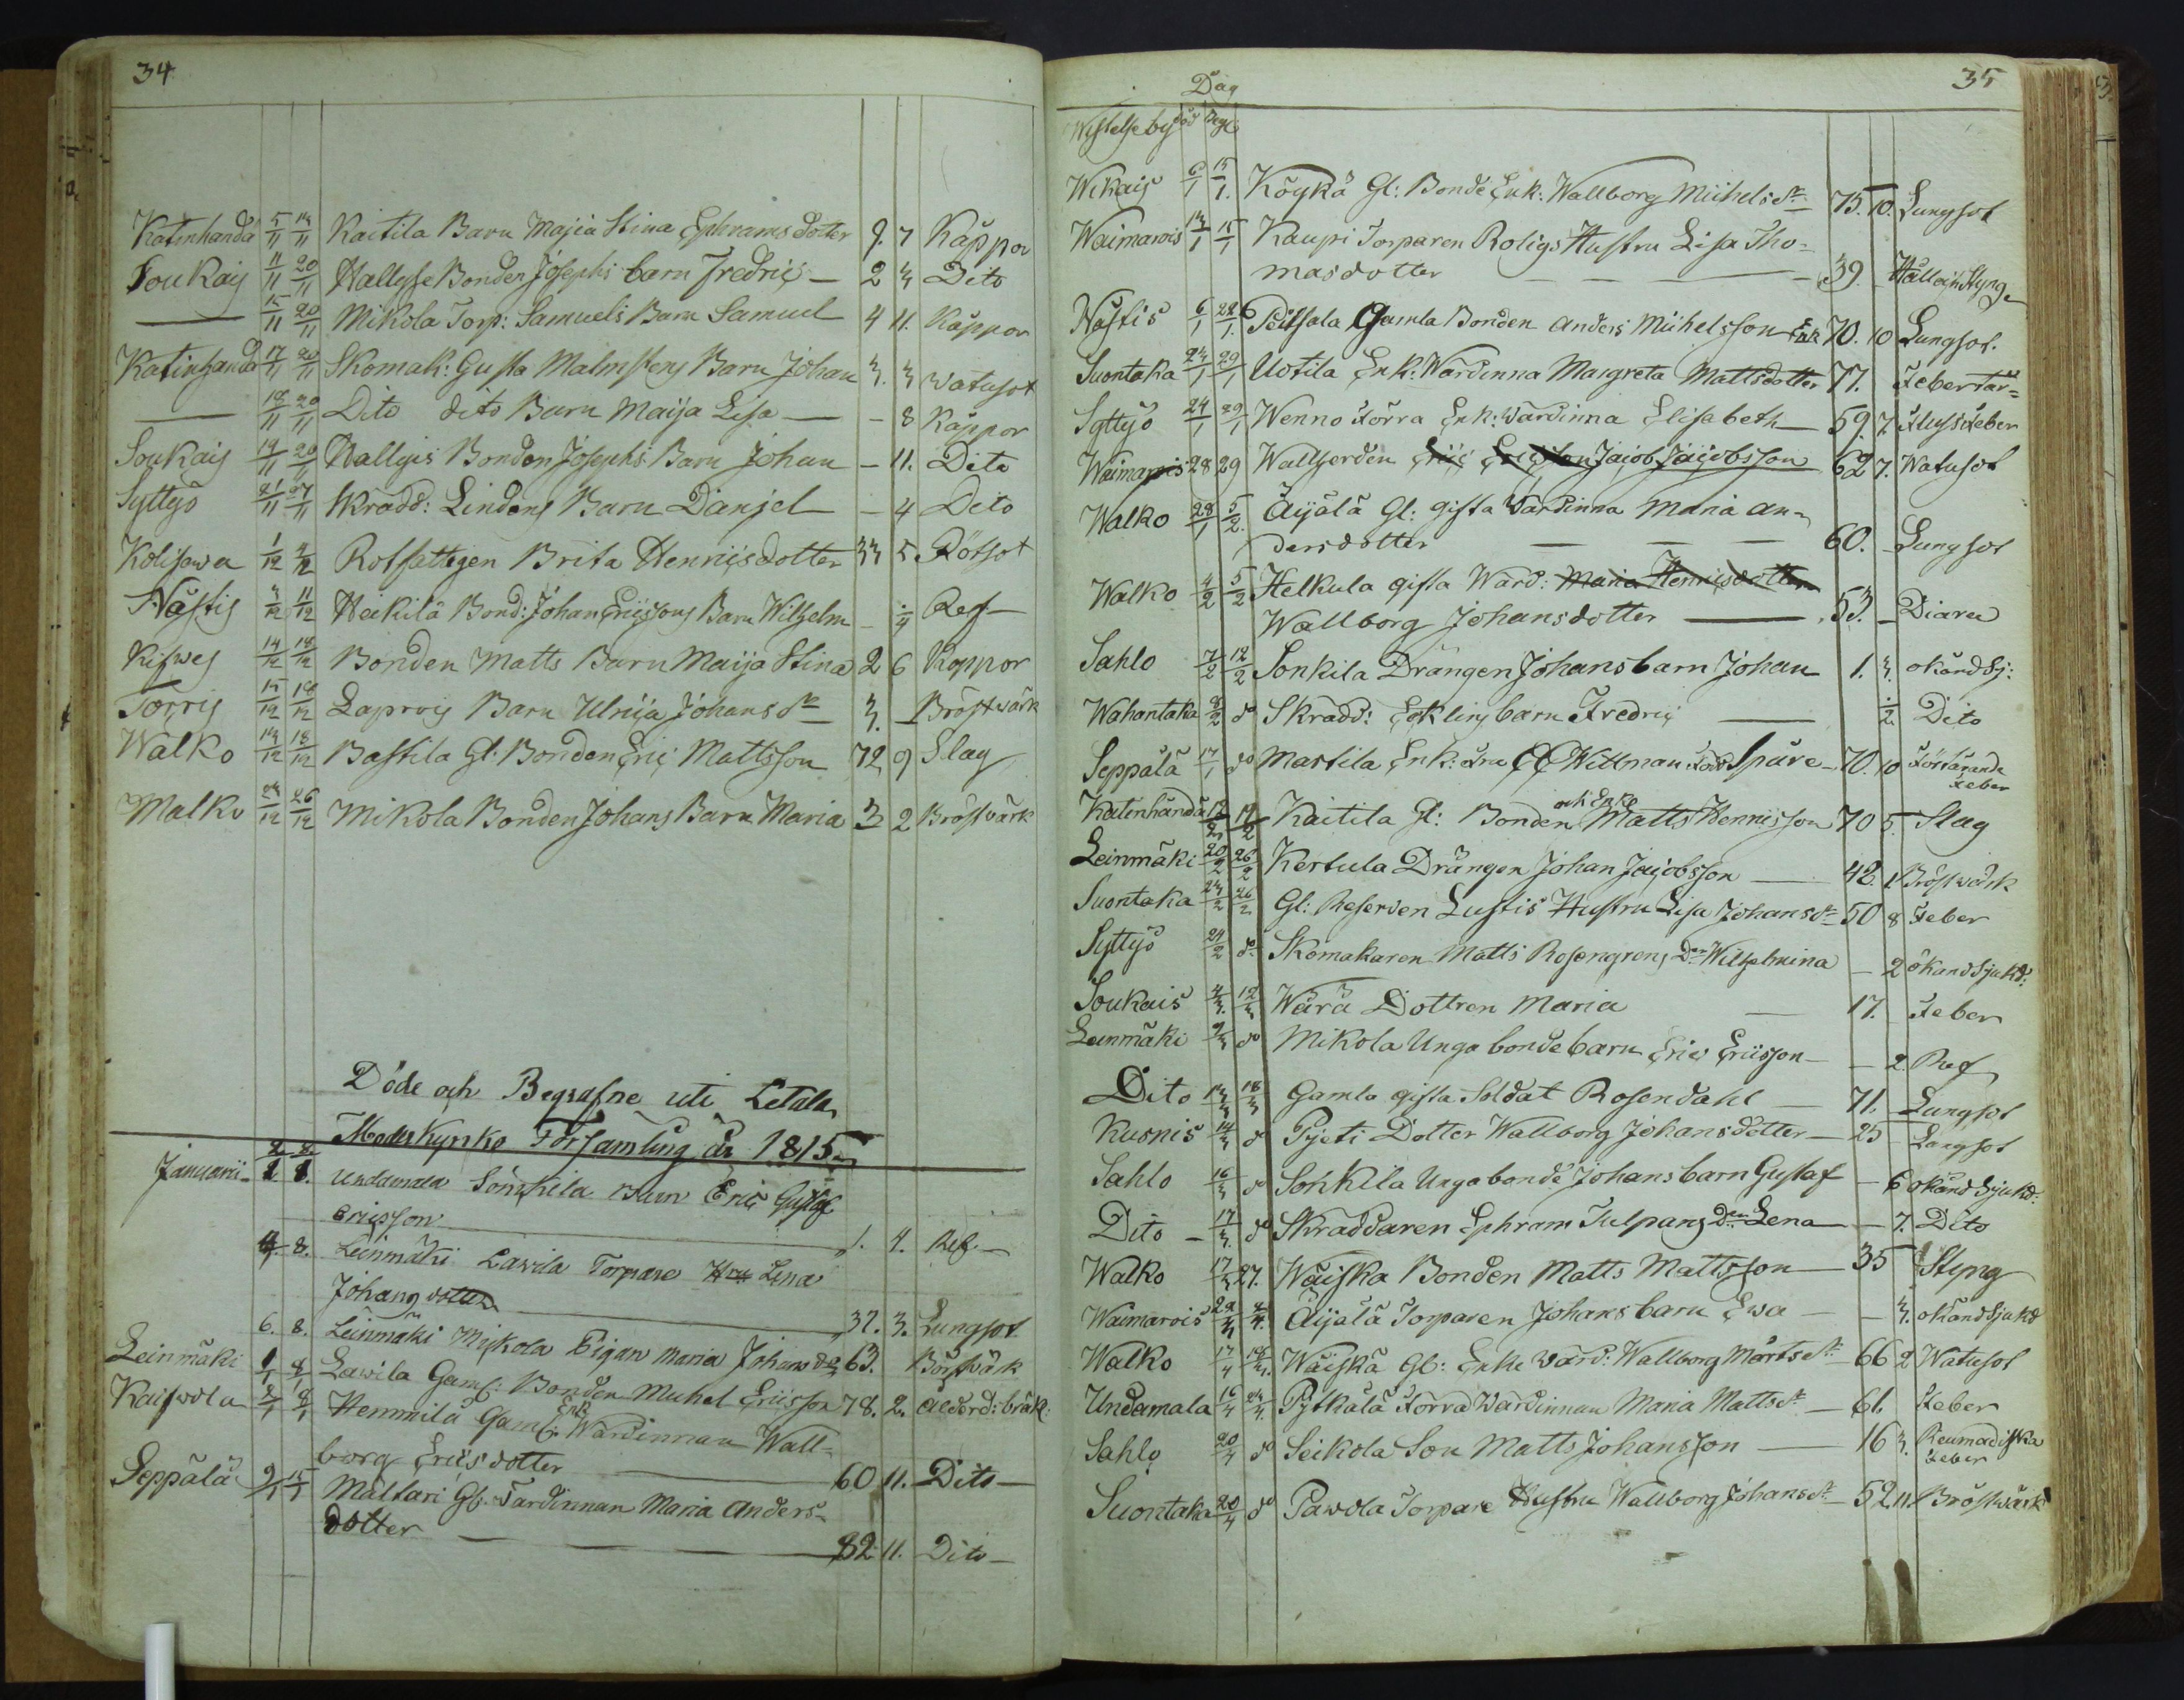 34
Katinhanda 5/11 13/11 Kaitila Barn Majia Stina Ephramsdotter 9. 7 Kåppor
Soukais 11/11 20/11 Hallyse Bonden Josephs barn Fredric — 2 3 Dito
— 15/11 20/11 Mikola Torp: Samuels Barn Samuel 4 11. Kåppor
Katinhanda 17/11 20/11 Skomak: Gusta Malmstens Barn Johan 3. 3 Watusot
— 18/11 20/11 Dito dito Barn Maija Lisa — - 8 Kåppor
Soukais 19/11 20/11 Hallyis Bonden Josephs Barn Johan — 11. Dito
Syttyö 21/11 27/11 Skrädd: Lindens Barn Danjel — 4 Dito
Kolisewa 1/12 4/12 Rotfattigen Brita Henricsdotter 33 5 Rötsot
Nästis 3/12 11/12 Heikilä Bond: Johan Ericssons Barn Wilhelm - 1/4 Ref—
Kifwes 14/12 18/12 Bonden Matts Barn Maija Stina 2 6 Koppor
Torris 15/12 18/12 Laprois Barn Ulrica Johans dr 3. — Bröstwärk
Walko 13/12 18/12 Bastila Gl. Bonden Eric Mattsson 72 9 Slag
Walko 23/12 26/12 Mikola Bonden Johans Barn Maria 3 2 Bröstvärk
Döde och Begrafne uti Letala
Moderkyrko Församling år 1815
Januarii 2. 8. Undamala Sonkila Barn Eric Gustaf
Ericsson — 1. 4. Ref.—
4 8. Leinmäki Lawila Torpare Hru Lena
Johans dotter — 32. 3. Lungsot
6. 8. Leinmäki Mikola Pigan Maria Johans dr 63. Bröstvärk
Leinmäki 1/1 8/1 Lawila Gaml: Bonden Michel Ericsson 78. 2. ålderd: bräk:
Kaiswola 8/1 8/1 Hemmilä Gaml: Enk Wärdinnan Wall-
borg Ericsdotter — 60 11. Dito—
Seppälä 9/1 15/1 Maltari Gl. Wärdinnan Maria Anders-
dotter — 82 11. Dito—
35
Dag
Wistelse by död Begr
Wekais 6/1 15/1. Köykä Gl: Bonde Enk: Wallborg Michels dr 75. 10. Lungsot
Waimarois 13/1 15/1 Kaupi Torparen Roligs Hustru Lisa Tho-
masdotter — — 39. Håll och Styng
Nästis 6/1 22/1 Peltsala Gamla Bonden Anders Michelsson Enk 70. 10 Lungsot.
Suontaka 23/1 29/1 Uotila Enk: Wärdinna Margreta Mattsdotter 77. Febertär=
Syttyö 24/1 29/1 Wenno Förra Enk: Wärdinna Elisabeth — 59 7. Fluss Feber
Waimarois 28 29 Wallherden Eric Ericsson Jacob Jacobsson 62 7. Watusot
Walko 28/1 5/2. Äijälä Gl: gifta Wärdinna Maria An-
dersdotter — — — 60. — Lungsot
Walko 4/2 5/2 Helkula gifta Wärd: Maria Henricsdotter
Wallborg Johansdotter — 53. — Diaren
Sahlo 7/2 12/2 Sonkila Drängen Johans barn Johan 1. 3. okänd Sj:
Wahantaka 8/2 do Skrädd: Ecklins barn Fredric — 1/2 Dito
Seppälä 17/1 do Mastila Enk: Fru CC Wittman född Spåre — 70. 10 Förtärande
feber
Katinhändä 12/2 19/2 Kaitila Gl: Bonden och Enkl Matts Henricsson 70 5. Slag
Leinmäki 20/2 26/2 Kertula Drängen Johan Jacobsson — 42. 1 Bröstwärk
Suontaka 23/2 26/2 Gl: Reserven Lustis Hustru Lisa Johans dr 50 8 Feber
Syttyö 24/2 do Skomakaren Matts Rosengrens Dr Wilhelmina — 2 okänd Sjukd:
Soukais 4/3. 12/3 Wärä Dottren Maria — 17. Feber
Leinmäki 9/3 do Mikola Unga bonde barn Eric Ericsson — — 2 Ref
Dito 13/3 18/3 Gamla gifta Soldat Rosendahl — 71. Lungsot
Kusnis 14/3 do Pyeti Dotter Wallborg Johansdotter — 25 Lungsot
Sahlo 16/3 do Sonkila Unga bonde Johans barn Gustaf — 6 okänd Sjukd:
Dito — 17/3. do Skräddaren Ephram Tulpans Dr Lena — — 7. Dito
Walko 17/3 27. Wäiska Bonden Matts Mattsson — 35 Styng
Waimarois 29/3 2/4. Äijälä Torparen Johans barn Ewa — — 3. okänd Sjukd
Walko 17/4 18/4. Wäiskä Gl: Enke Wärd: Wallborg Märts dr 66 2 Watusot
Undamala 16/4 23/4. Pytkälä Förra Wärdinnan Maria Matts dr — 61. Feber
Sahlo 20/4 do Seikola Son Matts Johansson — 16 3. Reumadiska
feber
Suontaka 20/4 do Pawola Torpare Hustru Wallborg Johans dr — 52 11. Bröstwärk